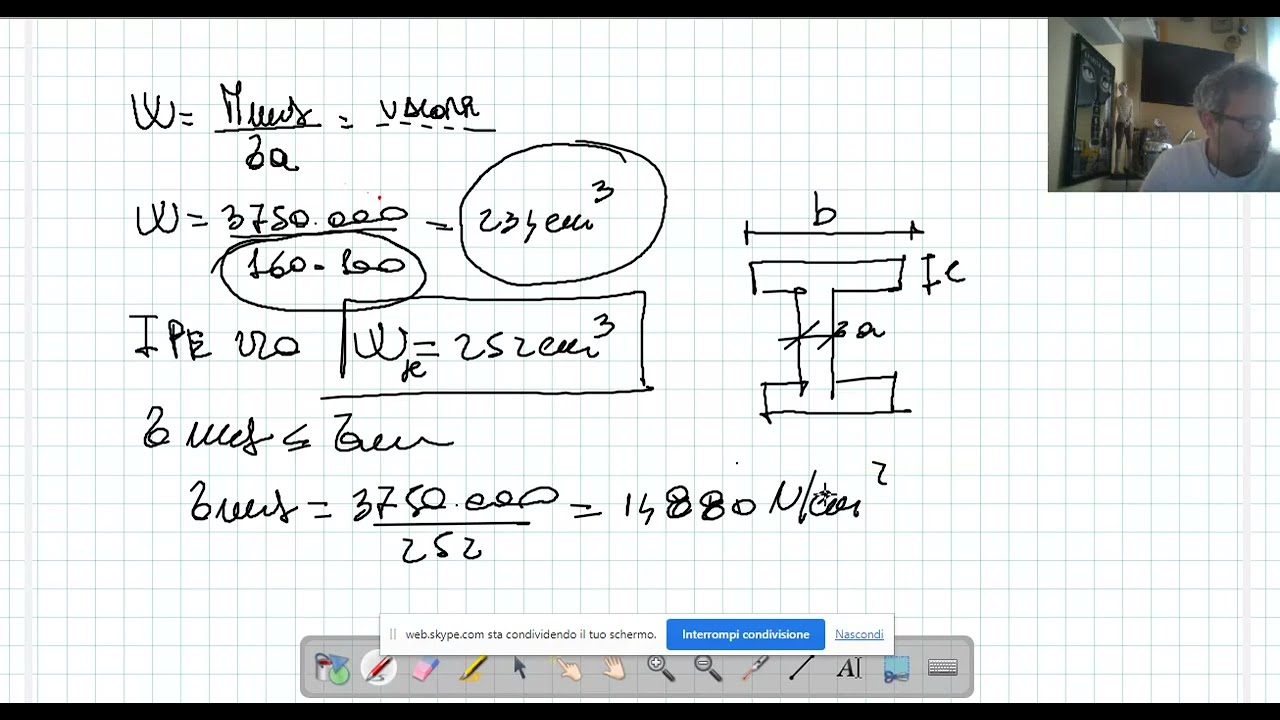 W = Mmax = VALORE
σa
W = 3750.000 = 234 cm³
160 - 100
IPE 220 Wx = 252 cm³
σ max ≤ σam
σmax = 3750.000 = 14880 N/cm²
252
b
e
a
web.skype.com sta condividendo il tuo schermo. Interrompi condivisione Nascondi
AI